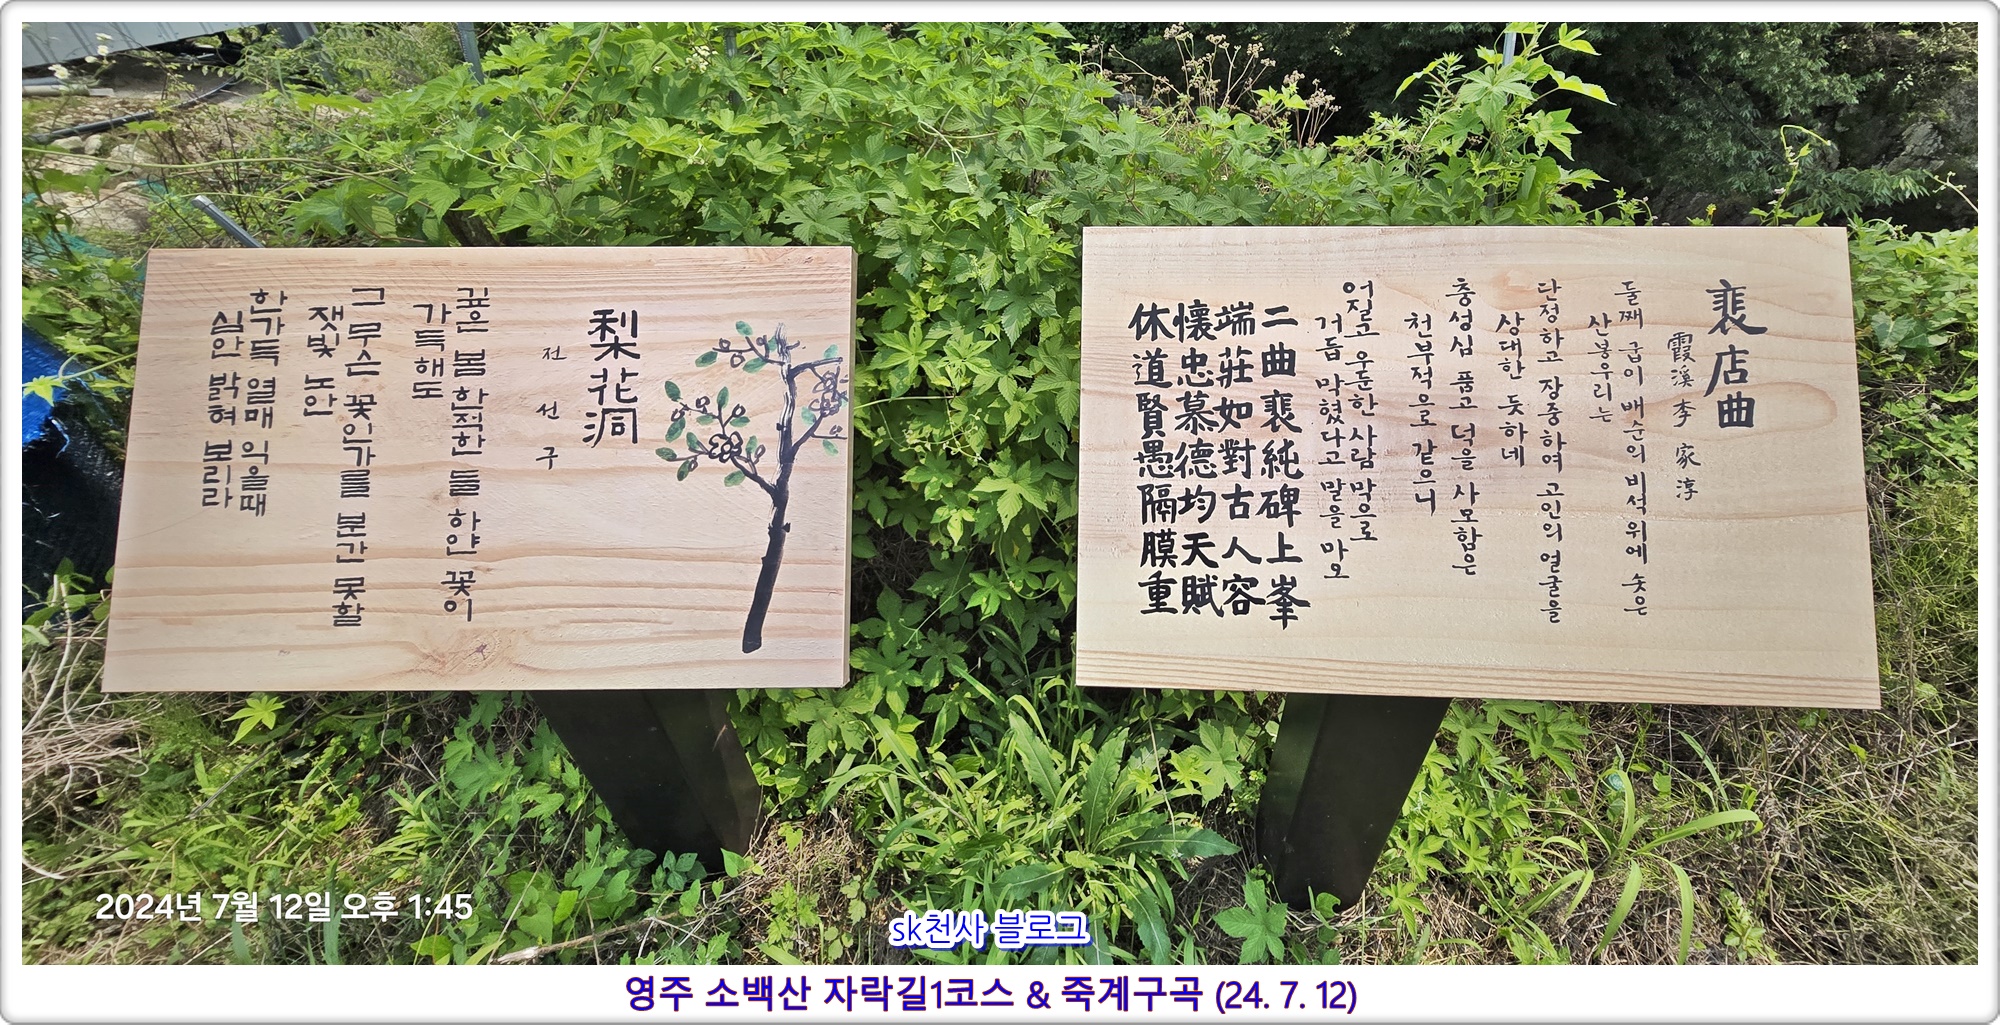 梨花洞
전선구
깊은 봄 한적한 들 하얀 꽃이
가득해도
그 무슨 꽃인가를 분간 못할
잿빛 노안
한가득 열매 익을때
심안 밝혀 보리라
裵店曲
霞溪 李家淳
둘째 굽이 배순의 비석 위에 솟은
산봉우리는
단정하고 장중하여 고인의 얼굴을
상대한 듯하네
충성심 품고 덕을 사모함은
천부적으로 같으니
어질고 우둔한 사람 막으로
거듭 막혔다고 말을 마오
二曲裵純碑上峯
端莊如對古人容
懷忠慕德均天賦
休道賢愚隔膜重
2024년 7월 12일 오후 1:45
sk천사 블로그
영주 소백산 자락길1코스 & 죽계구곡 (24. 7. 12)